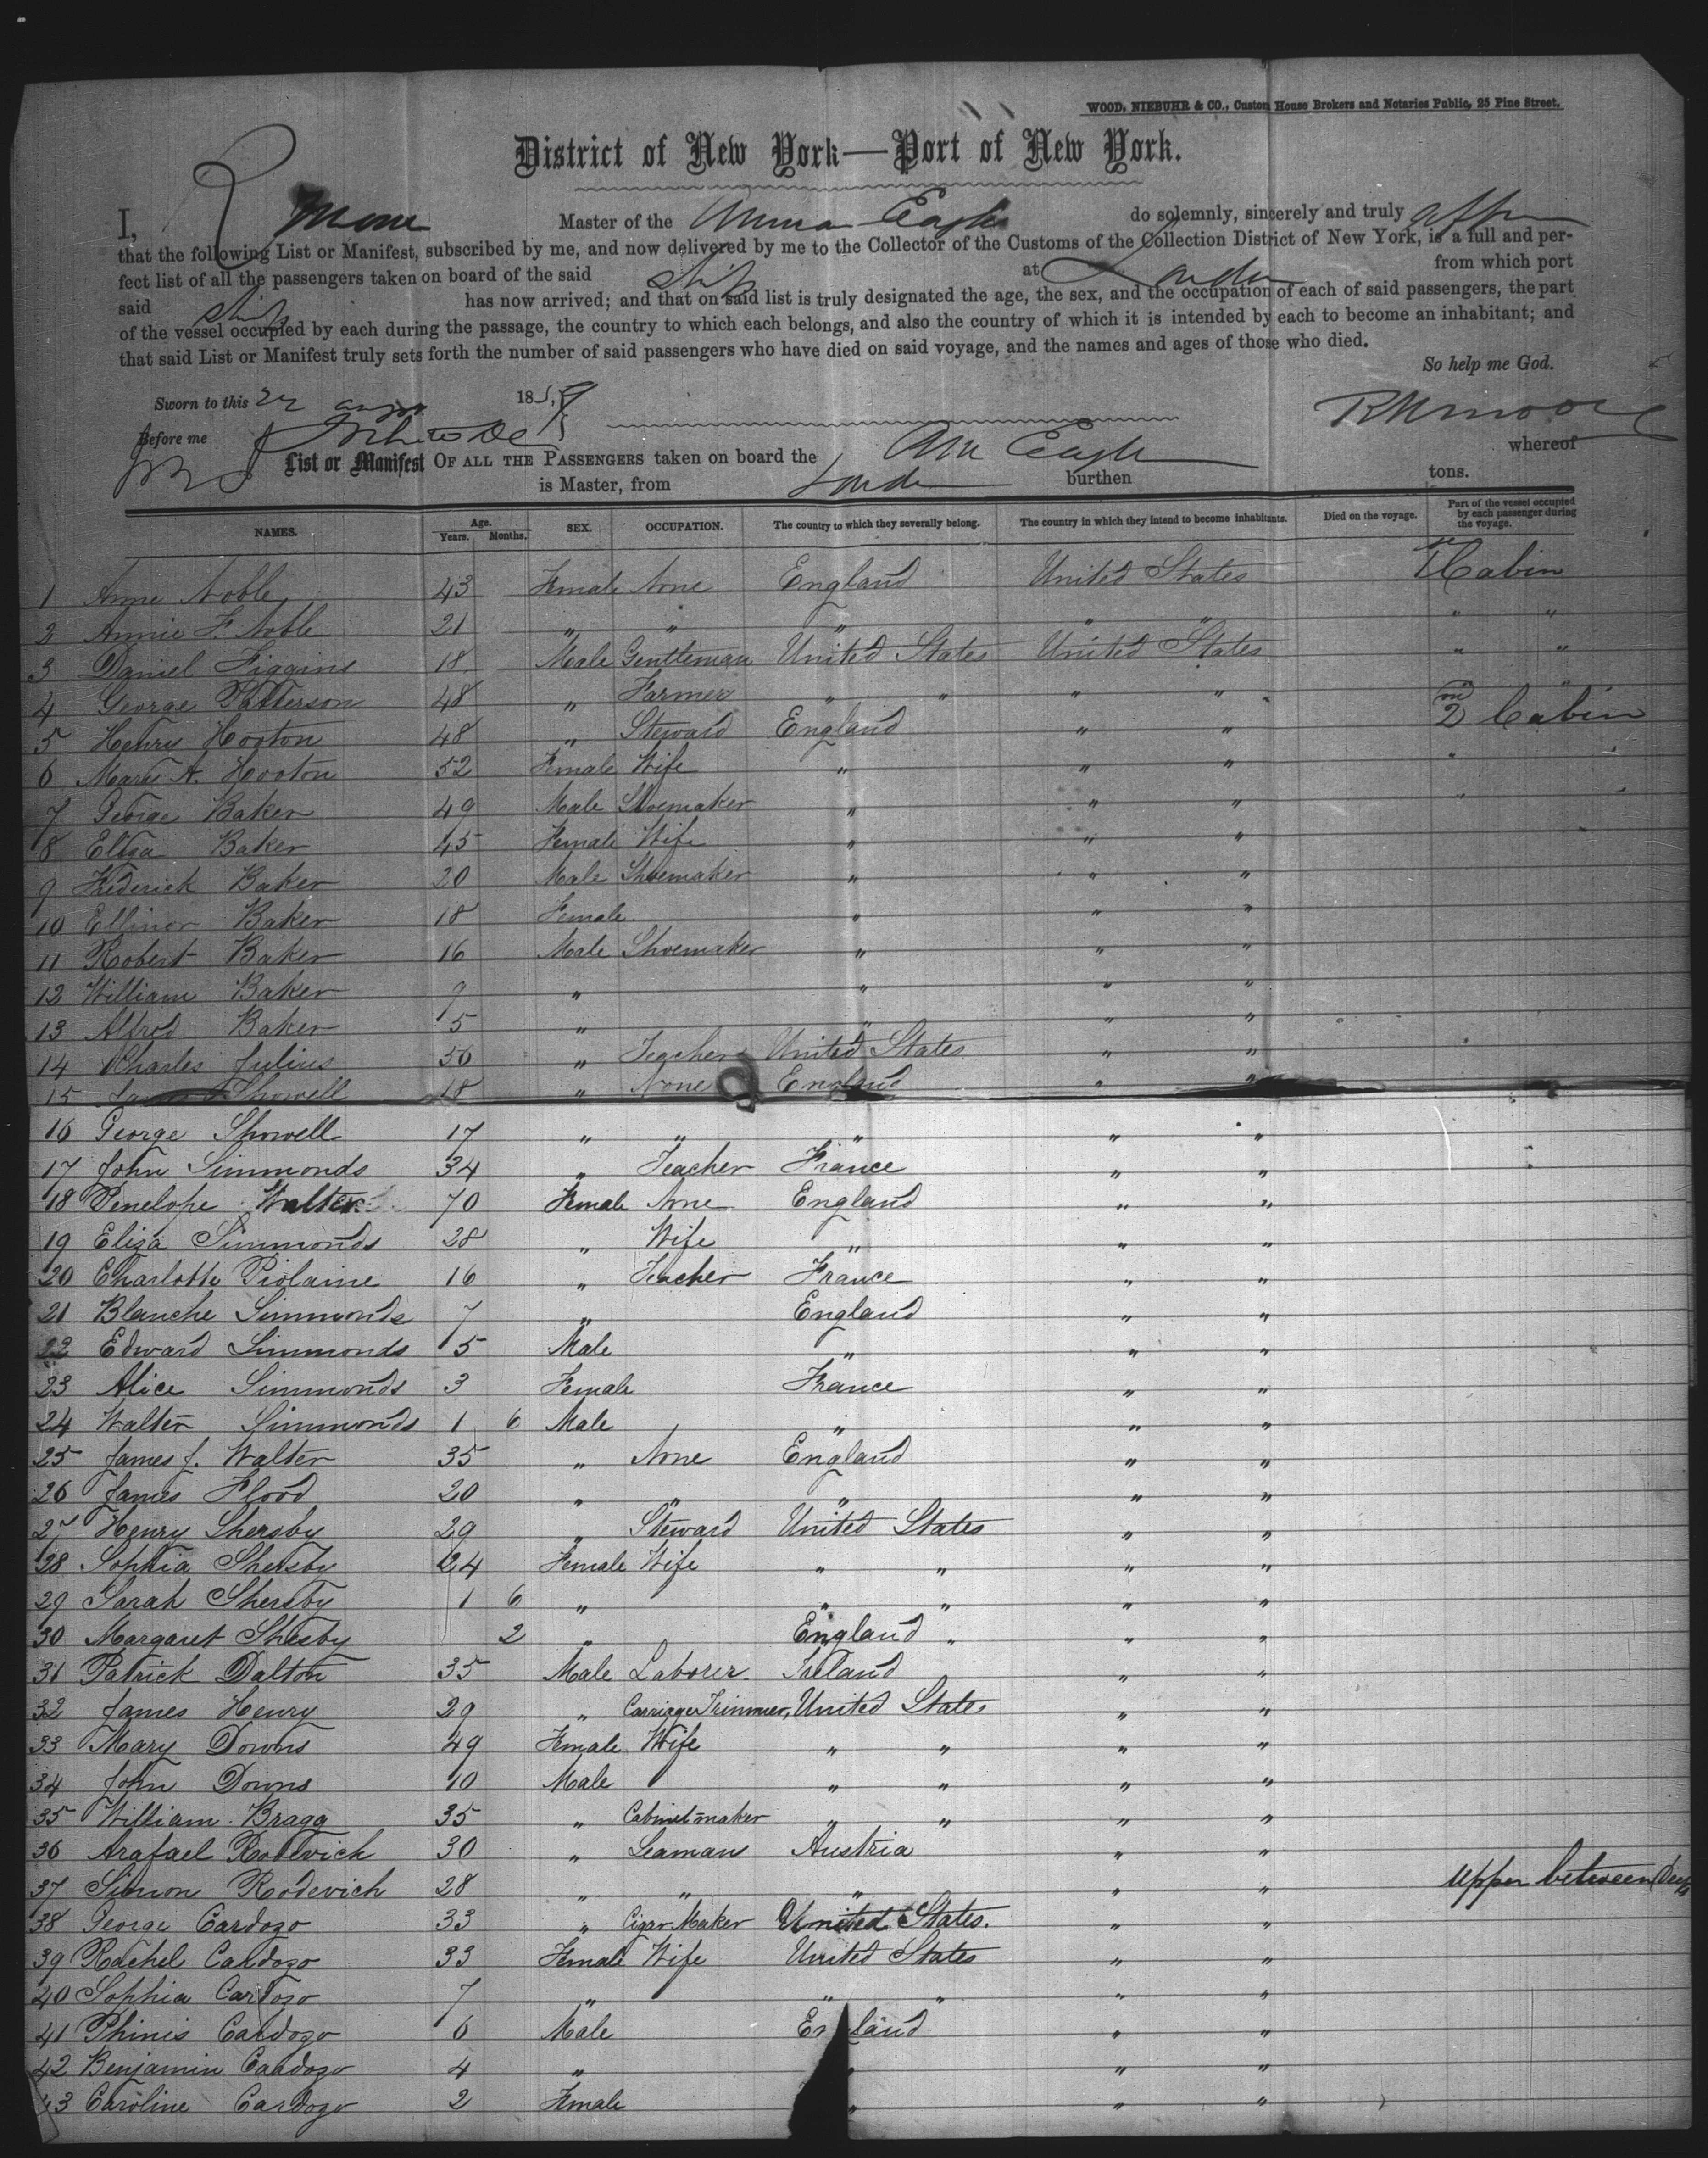 WOOD, NIEBUHR & CO., Custom House Brokers and Notaries Public, 25 Pine Street.
District of New York—Port of New York.
I, R Moore Master of the Eagle do solemnly, sincerely and truly
that the following List or Manifest, subscribed by me, and now delivered by me to the Collector of the Customs of the Collection District of New York, is a full and per-
fect list of all the passengers taken on board of the said ship at London from which port
said ship has now arrived; and that on said list is truly designated the age, the sex, and the occupation of each of said passengers, the part
of the vessel occupied by each during the passage, the country to which each belongs, and also the country of which it is intended by each to become an inhabitant; and
that said List or Manifest truly sets forth the number of said passengers who have died on said voyage, and the names and ages of those who died.
So help me God.
Sworn to this 22 1859
Before me
RHMoore
List or Manifest OF ALL THE PASSENGERS taken on board the Am Eagle whereof
is Master, from London burthen tons.
NAMES. Age. Years. Months. SEX. OCCUPATION. The country to which they severally belong. The country in which they intend to become inhabitants. Died on the voyage. Part of the vessel occupied by each passenger during the voyage.
1 Anne Noble 43 Female None England United States Cabin
2 Annie F. Noble 21 " " " " " " "
3 Daniel Figgins 18 Male Gentleman United States United States " "
4 George Patterson 48 " Farmer " " " " "
5 Henry Hooton 48 " Steward England " " 2nd Cabin
6 Mary A. Hooton 52 Female Wife " " " "
7 George Baker 49 Male Shoemaker " " " "
8 Eliza Baker 45 Female Wife " " "
9 Frederick Baker 20 Male Shoemaker " " "
10 Ellinor Baker 18 Female " " "
11 Robert Baker 16 Male Shoemaker " " "
12 William Baker 9 " " " "
13 Alfred Baker 5 " " " "
14 Charles Julius 50 " Teacher United States " "
15 Showell 18 " None England " "
16 George Showell 17 " " " " "
17 John Simmonds 34 " Teacher France " "
18 Penelope Walter 70 Female None England " "
19 Eliza Simmonds 28 " Wife " " "
20 Charlotte Piolaine 16 " Teacher France " "
21 Blanche Simmonds 7 " England " "
22 Edward Simmonds 5 Male " " "
23 Alice Simmonds 3 Female France " "
24 Walter Simmonds 1 6 Male " " "
25 James J. Walter 35 " None England " "
26 James Flood 20 " " " " "
27 Henry Shersby 29 " Steward United States " "
28 Sophia Shersby 24 Female Wife " " " "
29 Sarah Shersby 1 6 " " " " "
30 Margaret Shesby 2 " England " " "
31 Patrick Dalton 35 Male Laborer Ireland " "
32 James Henry 29 " Carriage Trimmer, United States " "
33 Mary Downs 49 Female Wife " " " "
34 John Downs 10 Male " " " "
35 William Bragg 35 " Cabinetmaker " " " "
36 Arafael Rodevich 30 " Seaman Austria " "
37 Simon Rodevich 28 " " " " " Upper between Deck
38 George Cardozo 33 " Cigar Maker United States. " "
39 Rachel Cardozo 33 Female Wife United States " "
40 Sophia Cardozo 7 " " " " "
41 Phinis Cardozo 6 Male England " "
42 Benjamin Cardozo 4 " " " "
43 Caroline Cardozo 2 Female " " "